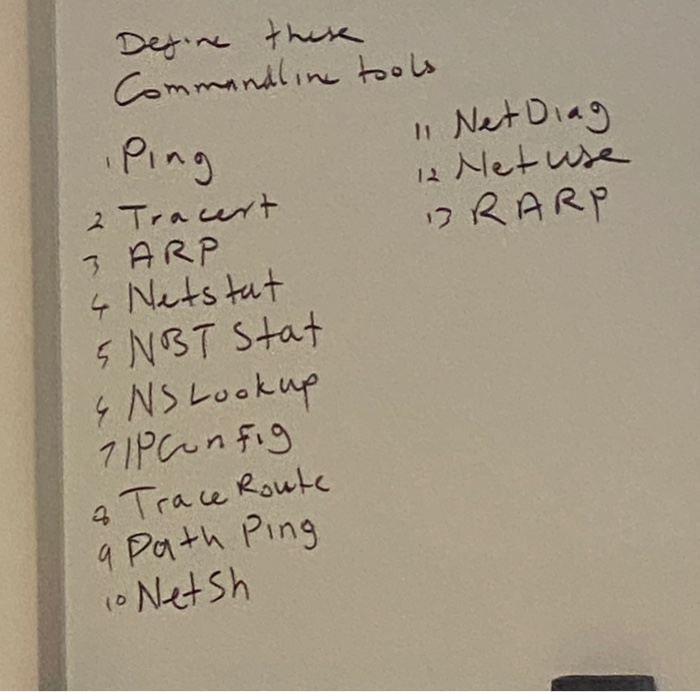 Define these
Commandline tools
1 Ping
2 Tracert
3 ARP
4 Netstat
5 NBT Stat
6 NSLookup
7 IPConfig
8 TraceRoute
9 Path Ping
10 NetSh
11 NetDiag
12 Netuse
13 RARP